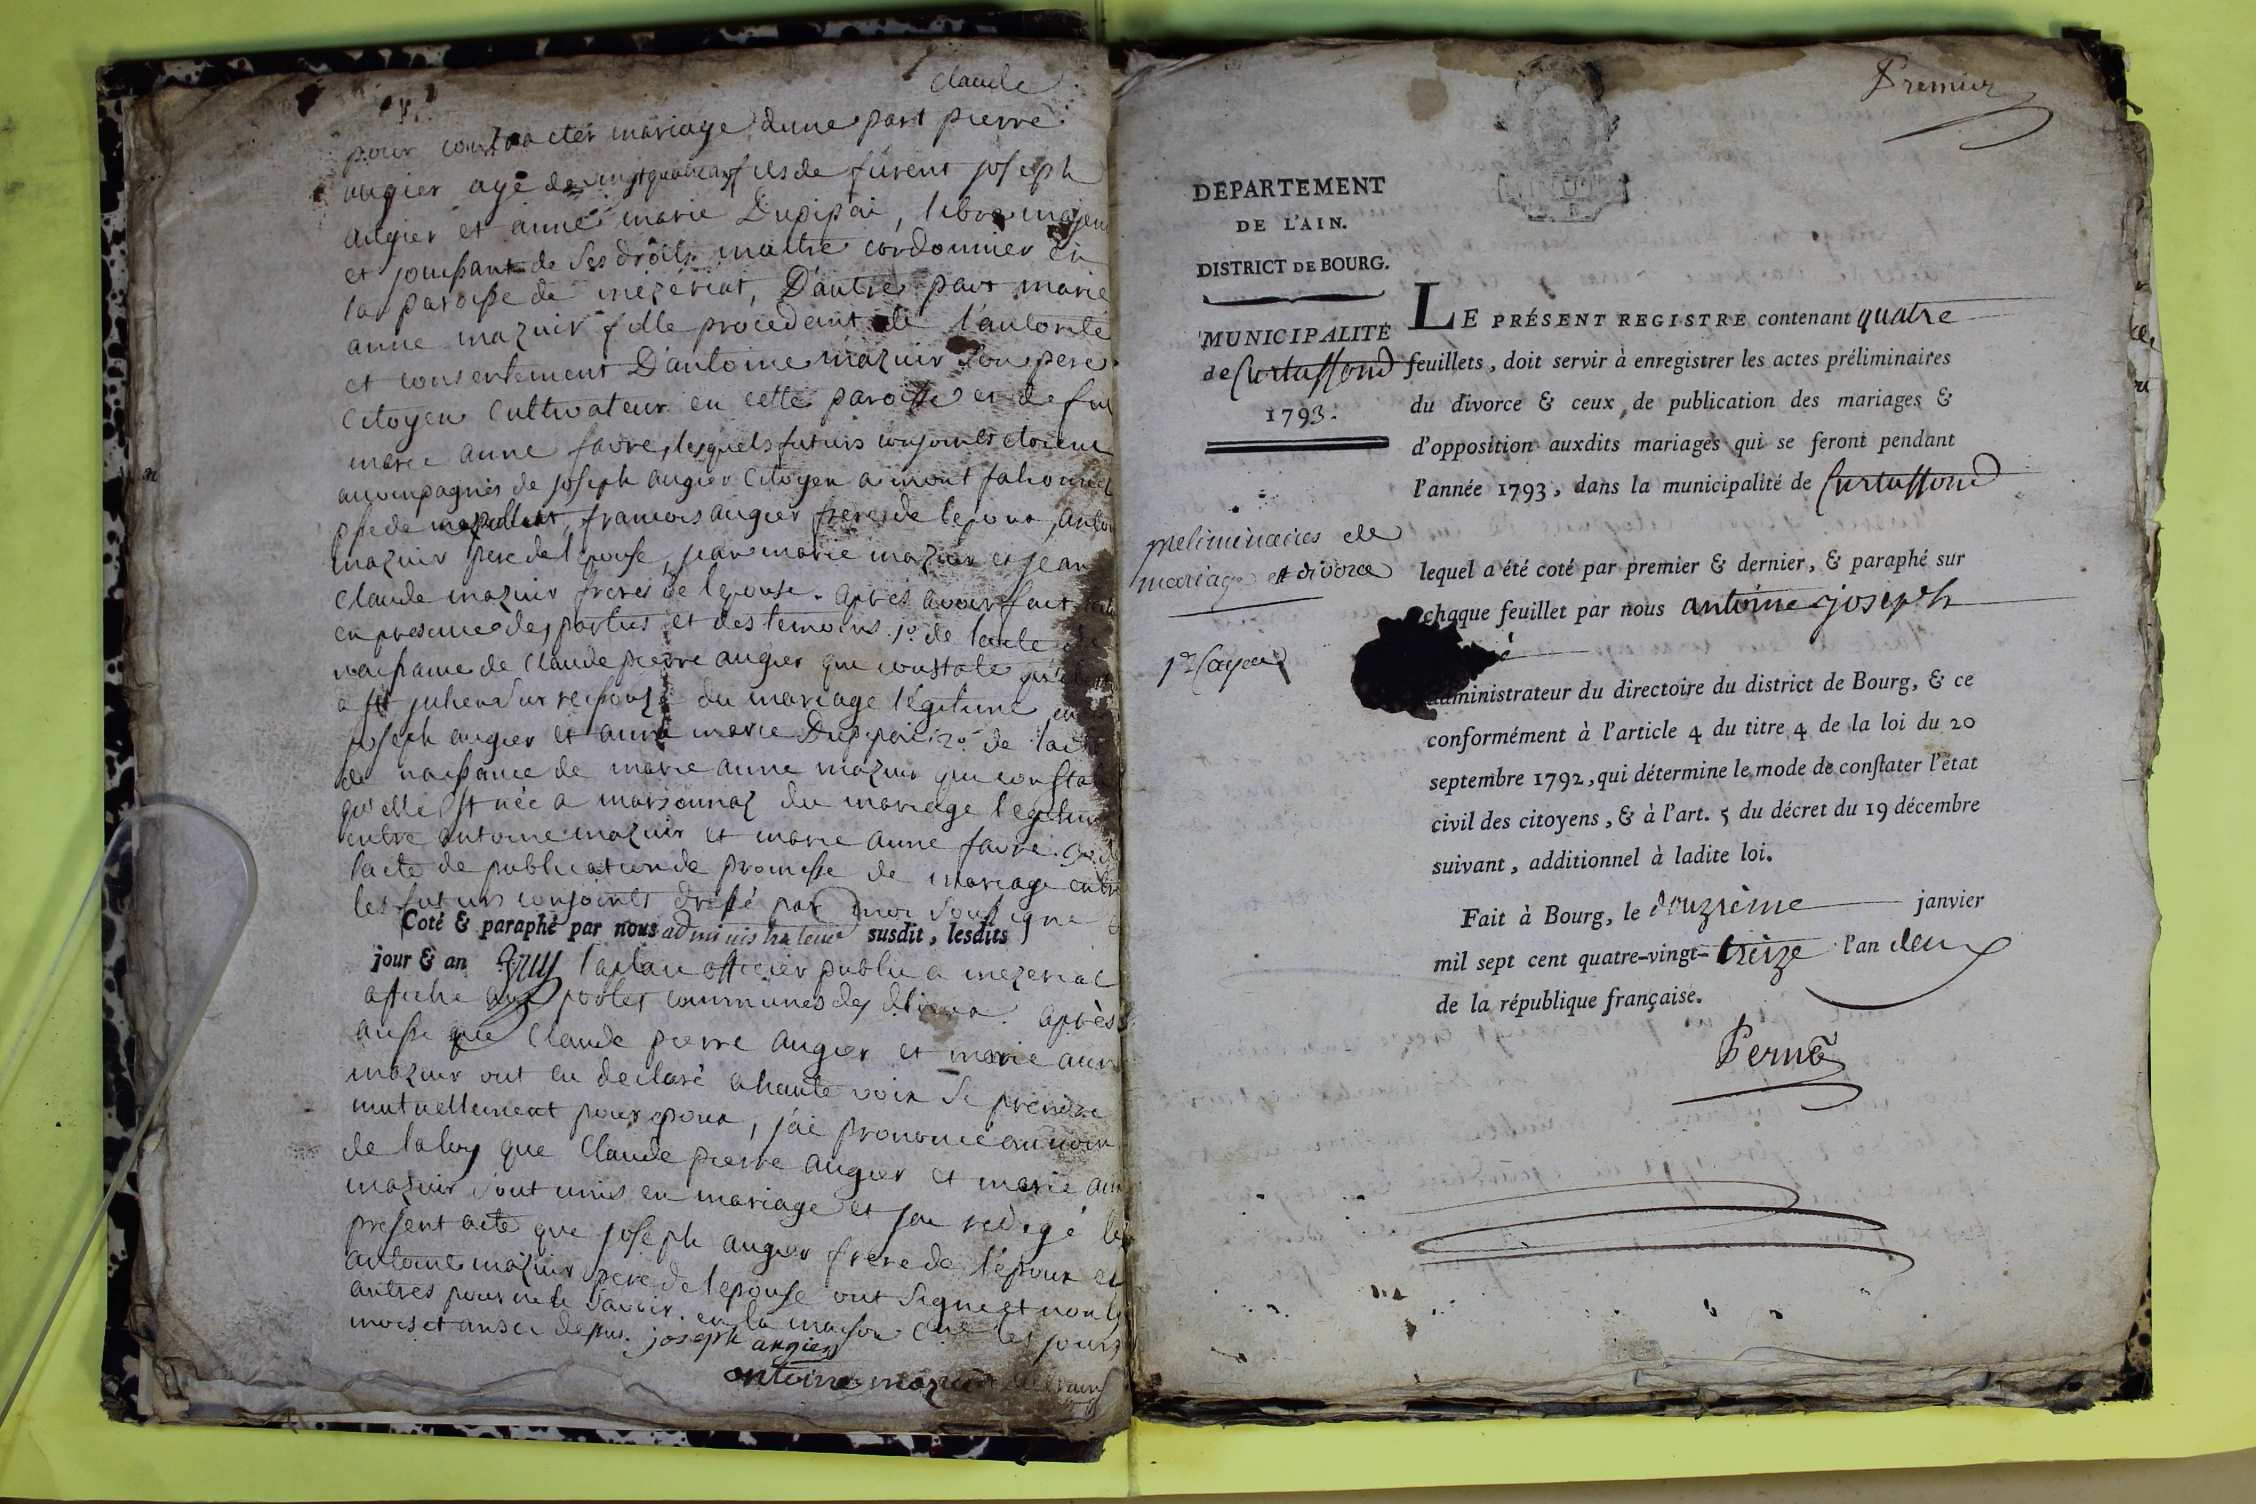 Claude
pour contracter mariage dune part pierre
augier agé de vingt quatre ans fils de furent joseph
augier et anne marie Dupipai, libre majeur
et jouissant de ses droits maitre cordonnier en
la paroisse de mezeriat, D'autre part marie
anne mazuir fille procedant de l'autorité
et consentement D'antoine mazuir son pere
Citoyen Cultivateur en cette paroisse et de fue
marie anne favre, lesquels futurs conjoints etoient
accompagnés de joseph augier Citoyen a mont
psse de francois augier freres de lepoux,
mazuir pere de lepouse, jean marie mazuir et jean
Claude mazuir freres de lepouse. après avoir fait
en presence des parties et des temoins 1º. de lacte de
naissance de Claude pierre augier qui constate
a st julien sur reissouze du mariage légitime
joseph augier et anne marie Dupipai 2º. de lacte
de naissance de marie anne mazuir qui constate
qu'elle est née a marsonnaz du mariage légitime
entre antoine mazuir et marie anne favre. 3º. de
lacte de publication de promesse de mariage entre
les futurs conjoints dressé par moi soussigné
Coté & paraphé par nous administrateur susdit, lesdits
jour & an officier public a mezeriat
affiché aux portes communes des
aussi que Claude pierre augier et marie anne
après
mazuir ont eu declaré a haute voix se prendre
mutuellement pour epoux, j'ai prononcé au nom
de la loy que Claude pierre augier et marie anne
mazuir sont unis en mariage et j'ai redigé le
present acte que joseph augier frere de l'époux et
antoine mazuir pere de lepouse ont signé et non les
autres pour ne le savoir. en la maison les jours
mois et an sci dessus. joseph augier
antoine mazuir
Premier
DEPARTEMENT
DE L'AIN.
DISTRICT DE BOURG.
MUNICIPALITÉ
de Curtassond
1793.
preliminaires de
mariage et divorce
1er Cayer
LE PRÉSENT REGISTRE contenant quatre
feuillets, doit servir à enregistrer les actes préliminaires
du divorce & ceux de publication des mariages &
d'opposition auxdits mariages qui se feront pendant
l'année 1793, dans la municipalité de Curtassond
lequel a été coté par premier & dernier, & paraphé sur
chaque feuillet par nous antoine joseph
administrateur du directoire du district de Bourg, & ce
conformément à l'article 4 du titre 4 de la loi du 20
septembre 1792, qui détermine le mode de constater l'état
civil des citoyens, & à l'art. 5 du décret du 19 décembre
suivant, additionnel à ladite loi.
Fait à Bourg, le douzieme janvier
mil sept cent quatre-vingt-treize l'an deux
de la république française.